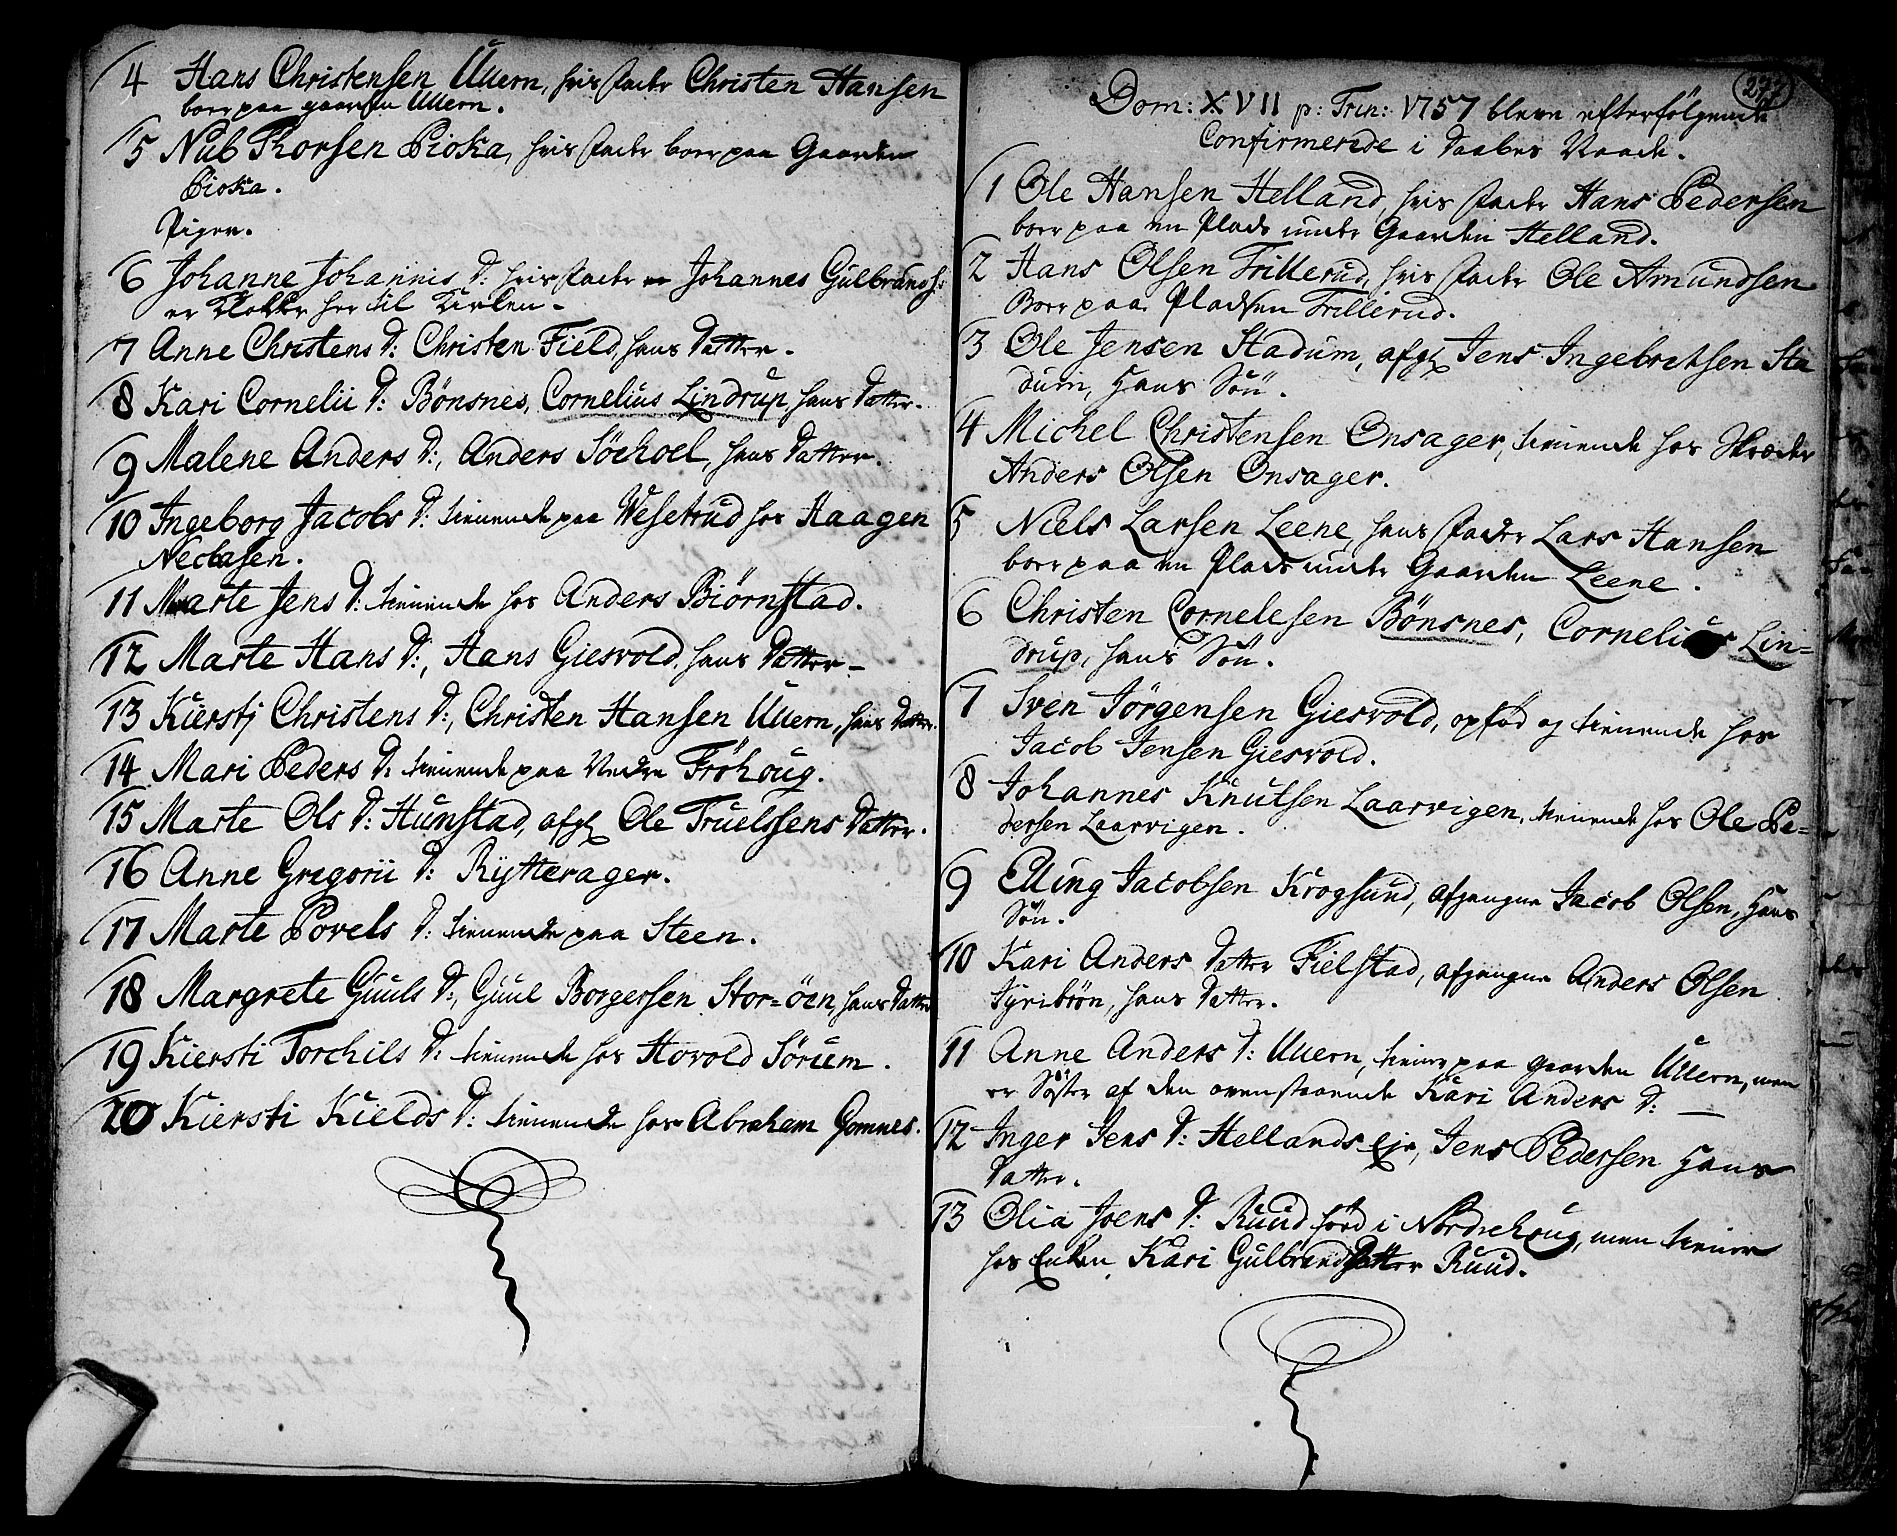 4 Hans Christensen Uuern, hvis fader Christen Hansen
boer paa gaarden Uuern.
5 Nub Rorsen Pioka, hvis fader boer paa Gaarden
Pioka.
Piger.
6 Johanne Johannis D: hvis fader Johannes Gulbrands:
er Klokker her til Kirken.
7 Anne Christens D: Christen Field, hans Datter.
8 Kari Cornelii D: Bönsnes, Cornelius Lindrup, hans Datter.
9 Malene Anders D:, Anders Söehoel, hans Datter.
10 Ingeborg Jacobs D: tienende paa Wesetrud hos Haagen
Neclasen.
11 Marte Jens D: tienende hos Anders Biörnstad.
12 Marte Hans D:, Hans Giesvold, hans Datter.
13 Kierstj Christens D:, Christen Hansen Uuern, hans Datter.
14 Mari Peders D: tienende paa Nedre Fröhoug.
15 Marte Ols D: Hunstad, afg: Ole Truelssens Datter.
16 Anne Gregorii D: Rytterager.
17 Marte Povels D: tienende paa Steen.
18 Margrete Guuls D:, Guul Borgersen Stor=öen, hans Datter
19 Kiersti Torchils D: tienende hos Hovold Sörum.
20 Kiersti Kields D: tienende hos Abraham Gomnes.
277
Dom: XVII p: Trin: 1757 bleve efterfölgende
Confirmerede i Daabens Naade.
1 Ole Hansen Helland, hvis fader Hans Pedersen
boer paa en Plads under Gaarden Helland.
2 Hans Olsen Trillerud, hvis fader Ole Amundsen
Boer paa Pladsen Trillerud.
3 Ole Jensen Stadum, afg: Jens Ingebretsen Sta
dum, Hans Sön.
4 Michel Christensen Onsager, tienende hos Skræder
Anders Olsen Onsager.
5 Niels Larsen Leene, hans fader Lars Hansen
boer paa en Plads under Gaarden Leene.
6 Christen Cornelesen Bönsnes, Cornelius Lin=
drup, hans Sön.
7 Sven Jörgensen Giesvold, opfød og tienende hos
Jacob Jensen Giesvold.
8 Johannes Knutsen Laarvigen, tienende hos Ole Pe=
dersen Laarvigen.
9 Elling Jacobsen Krogsund, afgangne Jacob Olsen, Hans
Sön.
10 Kari Anders Datter Fielstad, afgangne Anders Olsen
Tyribrön, hans Datter.
11 Anne Anders D: Uuern, tiener paa gaarden Uuern, men
er Søster af den ovenstaaende Kari Anders D:
12 Inger Jens D: Hellands Eje, Jens Pedersen Hans
Datter.
13 Olia Joens D: Ruud, född i Nordrehoug, men tiener
hos Enken Kari Gulbrands Datter Ruud.